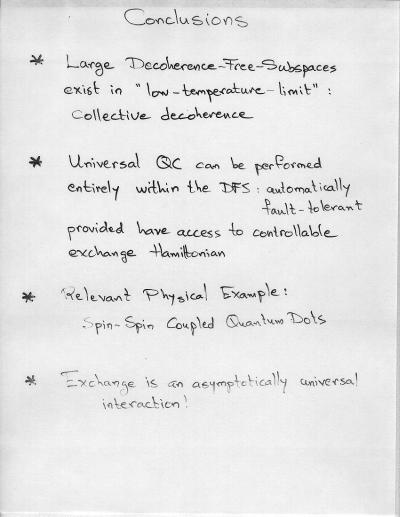 Conclusions
* Large Decoherence-Free-Subspaces
exist in "low-temperature-limit" :
Collective decoherence
* Universal QC can be performed
entirely within the DFS : automatically
fault-tolerant
provided have access to controllable
exchange Hamiltonian
* Relevant Physical Example :
Spin-Spin Coupled Quantum Dots
* Exchange is an asymptotically universal
interaction!